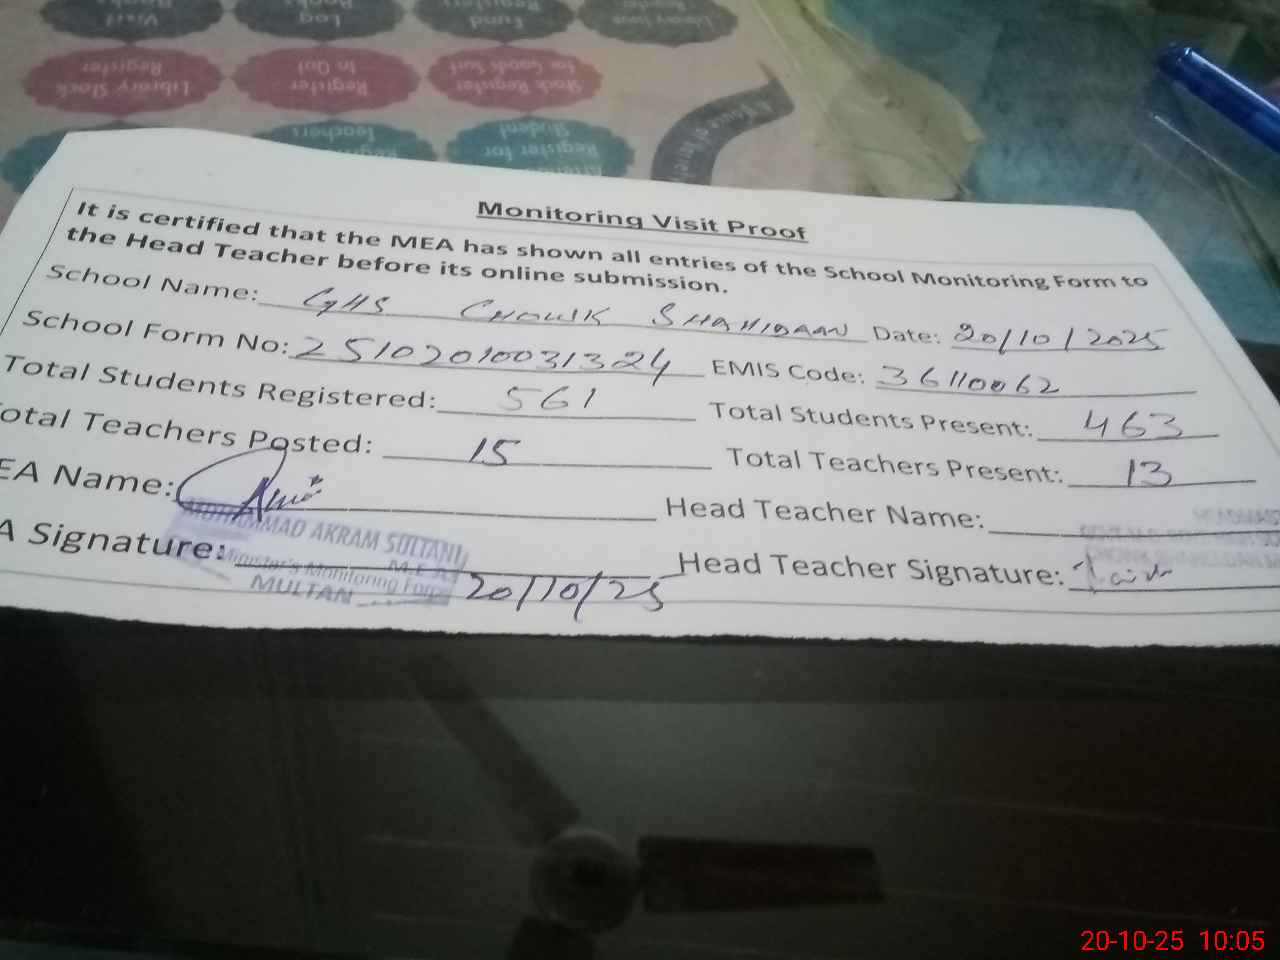 Monitoring Visit Proof
It is certified that the MEA has shown all entries of the School Monitoring Form to
the Head Teacher before its online submission.
School Name: GHS CHOWK SHAHIDAAN Date: 20/10/2025
School Form No: 25102010031324 EMIS Code: 36110062
Total Students Registered: 561 Total Students Present: 463
otal Teachers Posted: 15 Total Teachers Present: 13
EA Name: Head Teacher Name:
MUHAMMAD AKRAM SULTANI
A Signature: Head Teacher Signature:
M.E.A
Minister's Monitoring Force
MULTAN 20/10/25
Visit
Log
Fund
Library Stock
Register
Register
In Out
Stock Register
for Goods
Teachers
Register for
Student
20-10-25 10:05